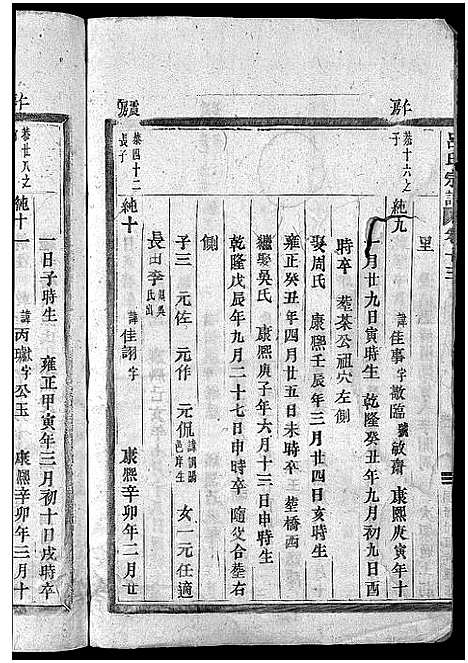 呂氏宗譜 卷十三
里
恭十六之
子
純九 諱佳事字敬臨號敏齋 康熙庚寅年十
一月廿九日寅時生 乾隆癸丑年九月初九日酉
時卒 塟茶公祖穴左側
娶周氏 康熙壬辰年三月廿四日亥時生
雍正癸丑年四月廿五日未時卒 塟橋西
繼娶吳氏 康熙庚子年六月十三日申時生
乾隆戊辰年九月二十七日申時卒 隨父合塟右
側
子三 元佐 元作 元侃 女一元任適
長田李氏出
恭四十二
長子
純十 諱佳詡字 康熙辛卯年二月廿
一日子時生 雍正甲寅年三月初十日戌時卒
恭廿八之
純十一 諱丙 字公玉 康熙辛卯年三月十